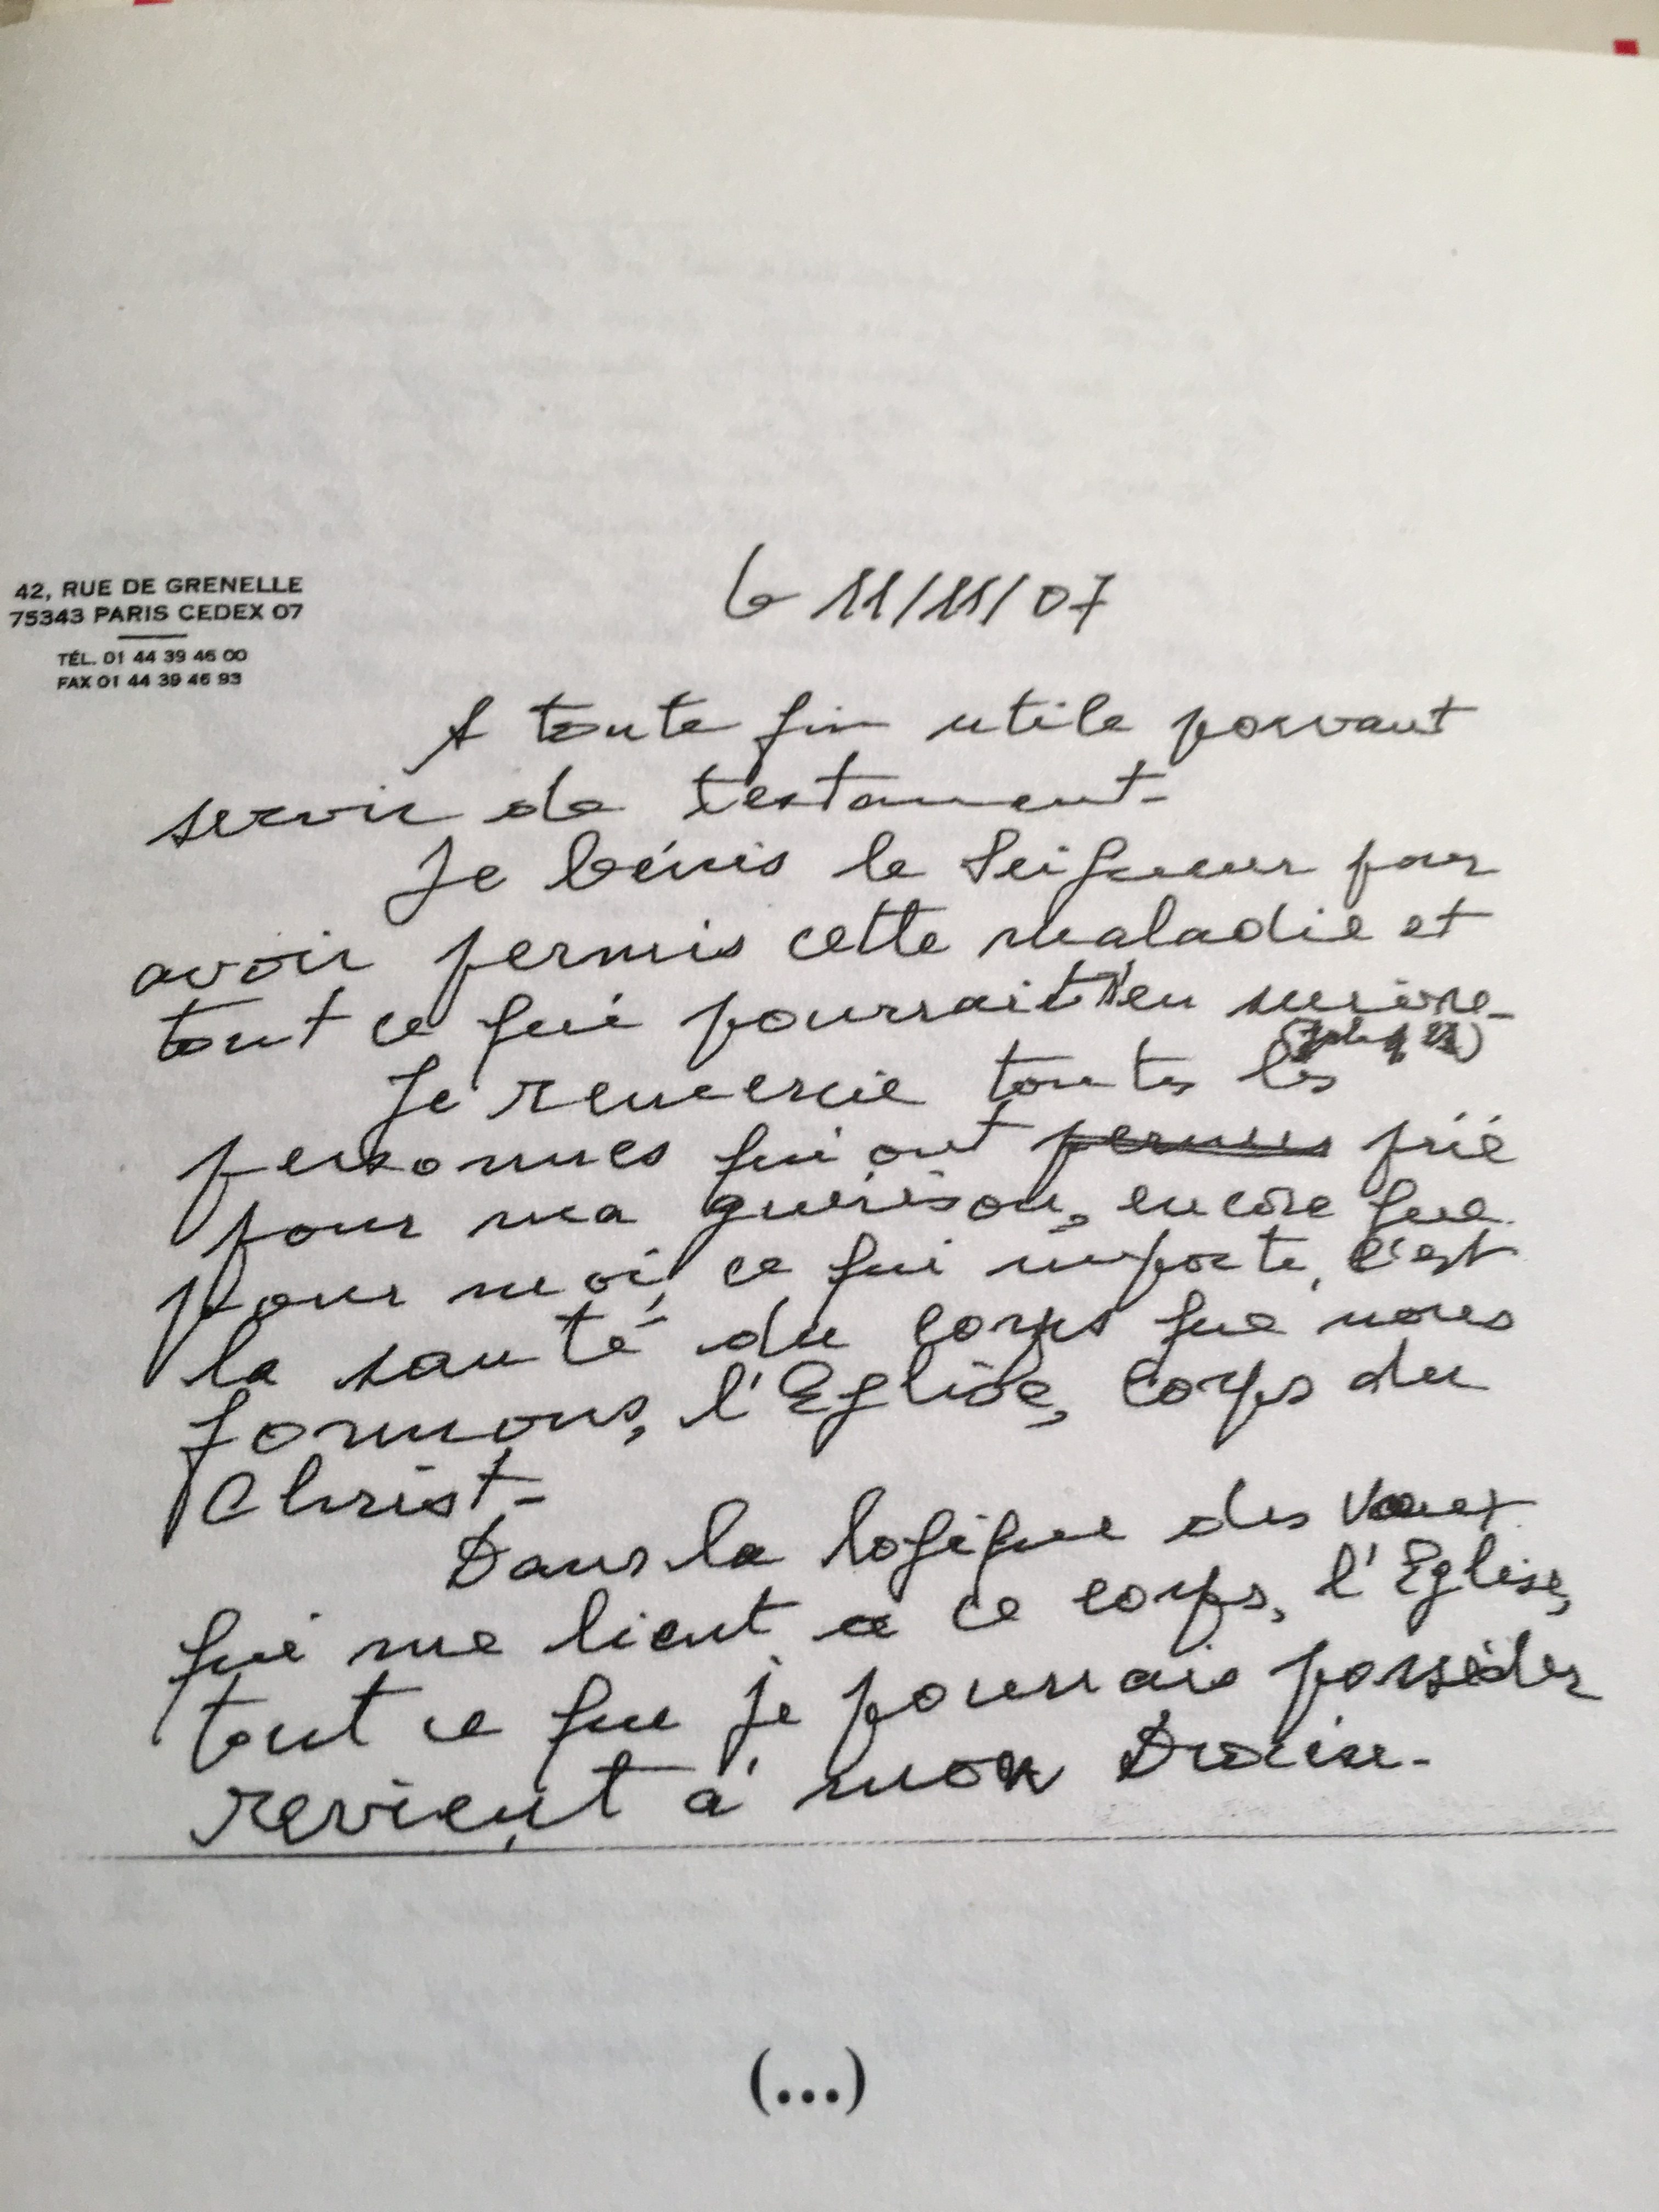 42, RUE DE GRENELLE
75343 PARIS CEDEX 07
TÉL. 01 44 39 46 00
FAX 01 44 39 46 93
le 11/11/07
A toute fin utile pouvant
servir de testament-
Je bénis le Seigneur pour
avoir permis cette maladie et
tout ce qui pourrait s'en suivre-
Je remercie toutes les
personnes qui ont permis prié
pour ma guérison, encore que
pour moi, ce qui importe, c'est
la santé du corps que nous
formons, l'Eglise, Corps du
Christ-
Dans la logique des vœux
qui me lient à ce corps, l'Eglise,
tout ce que je pourrais posséder
revient à mon Diocèse-
(...)